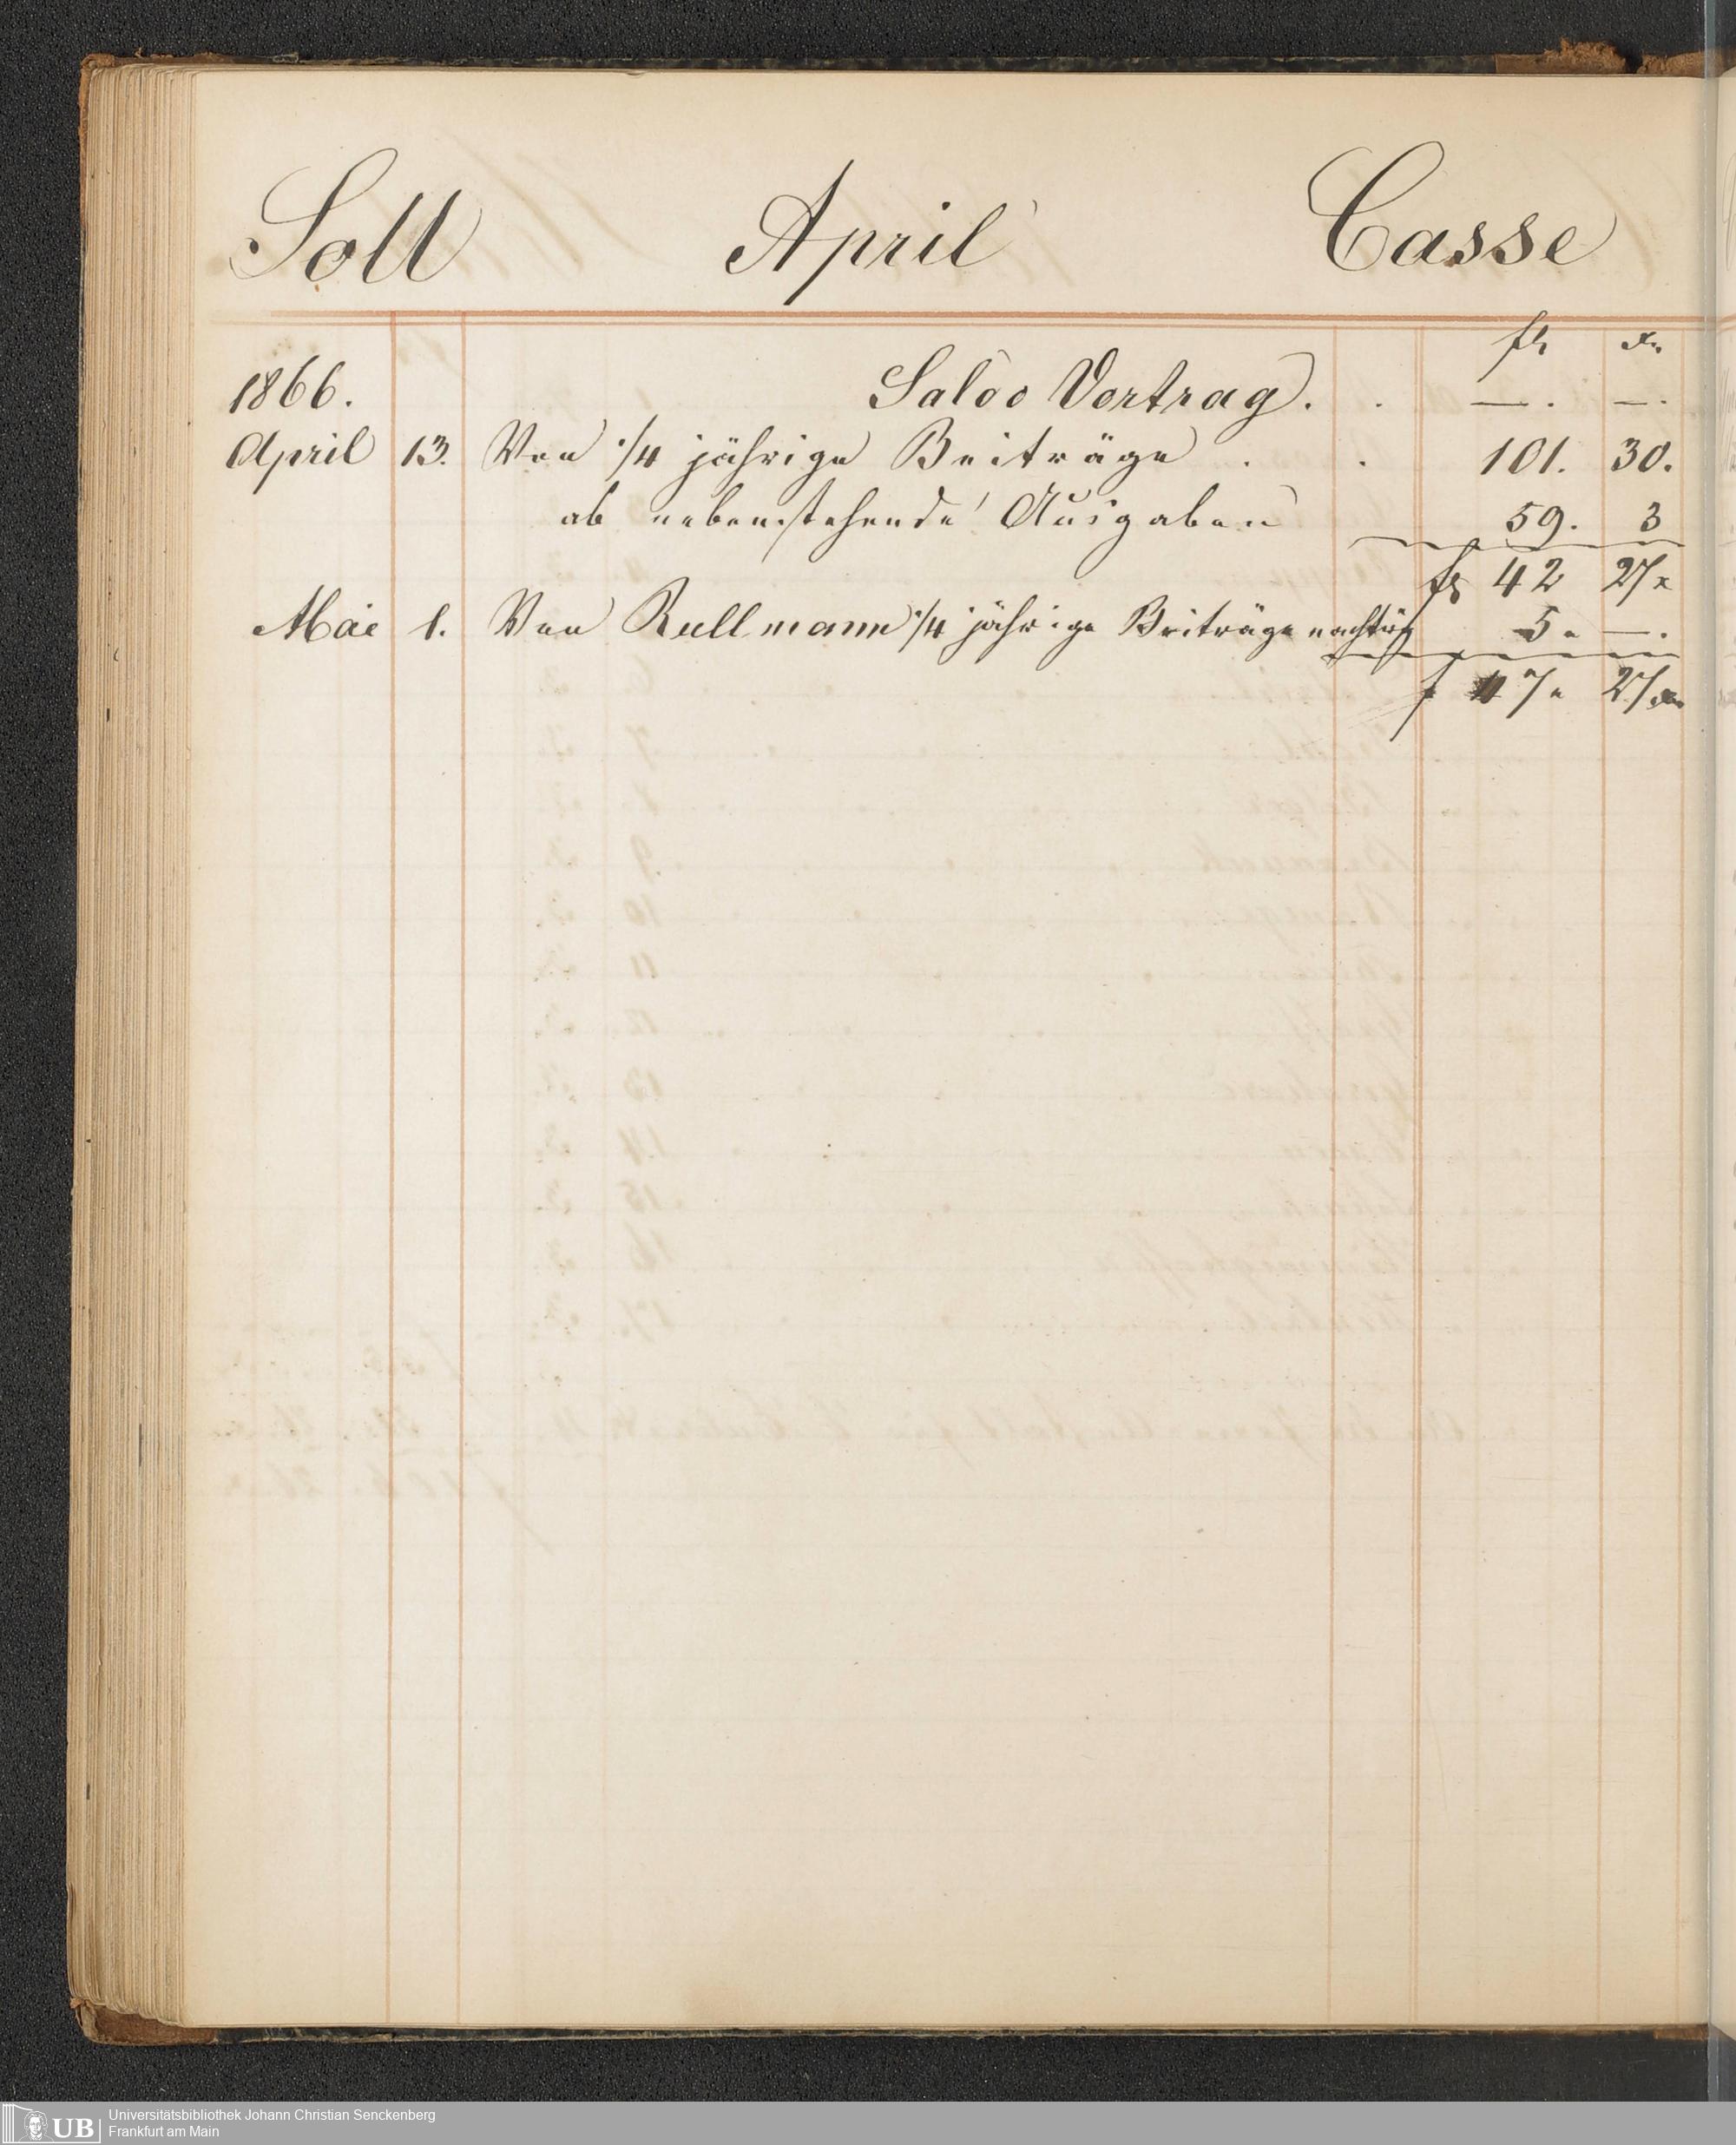 Soll April Casse
fl xr
1866. Saldo Vortrag. . — . — .
April 13. Von 1/4 jährige Beiträge . . 101. 30.
ab nebenstehende Ausgaben 59. 3
fl 42 27 x
Mai 1. Von Rullmann 1/4 jährige Beiträge 5. — .
f 47. 27 xr
UB Universitätsbibliothek Johann Christian Senckenberg
Frankfurt am Main